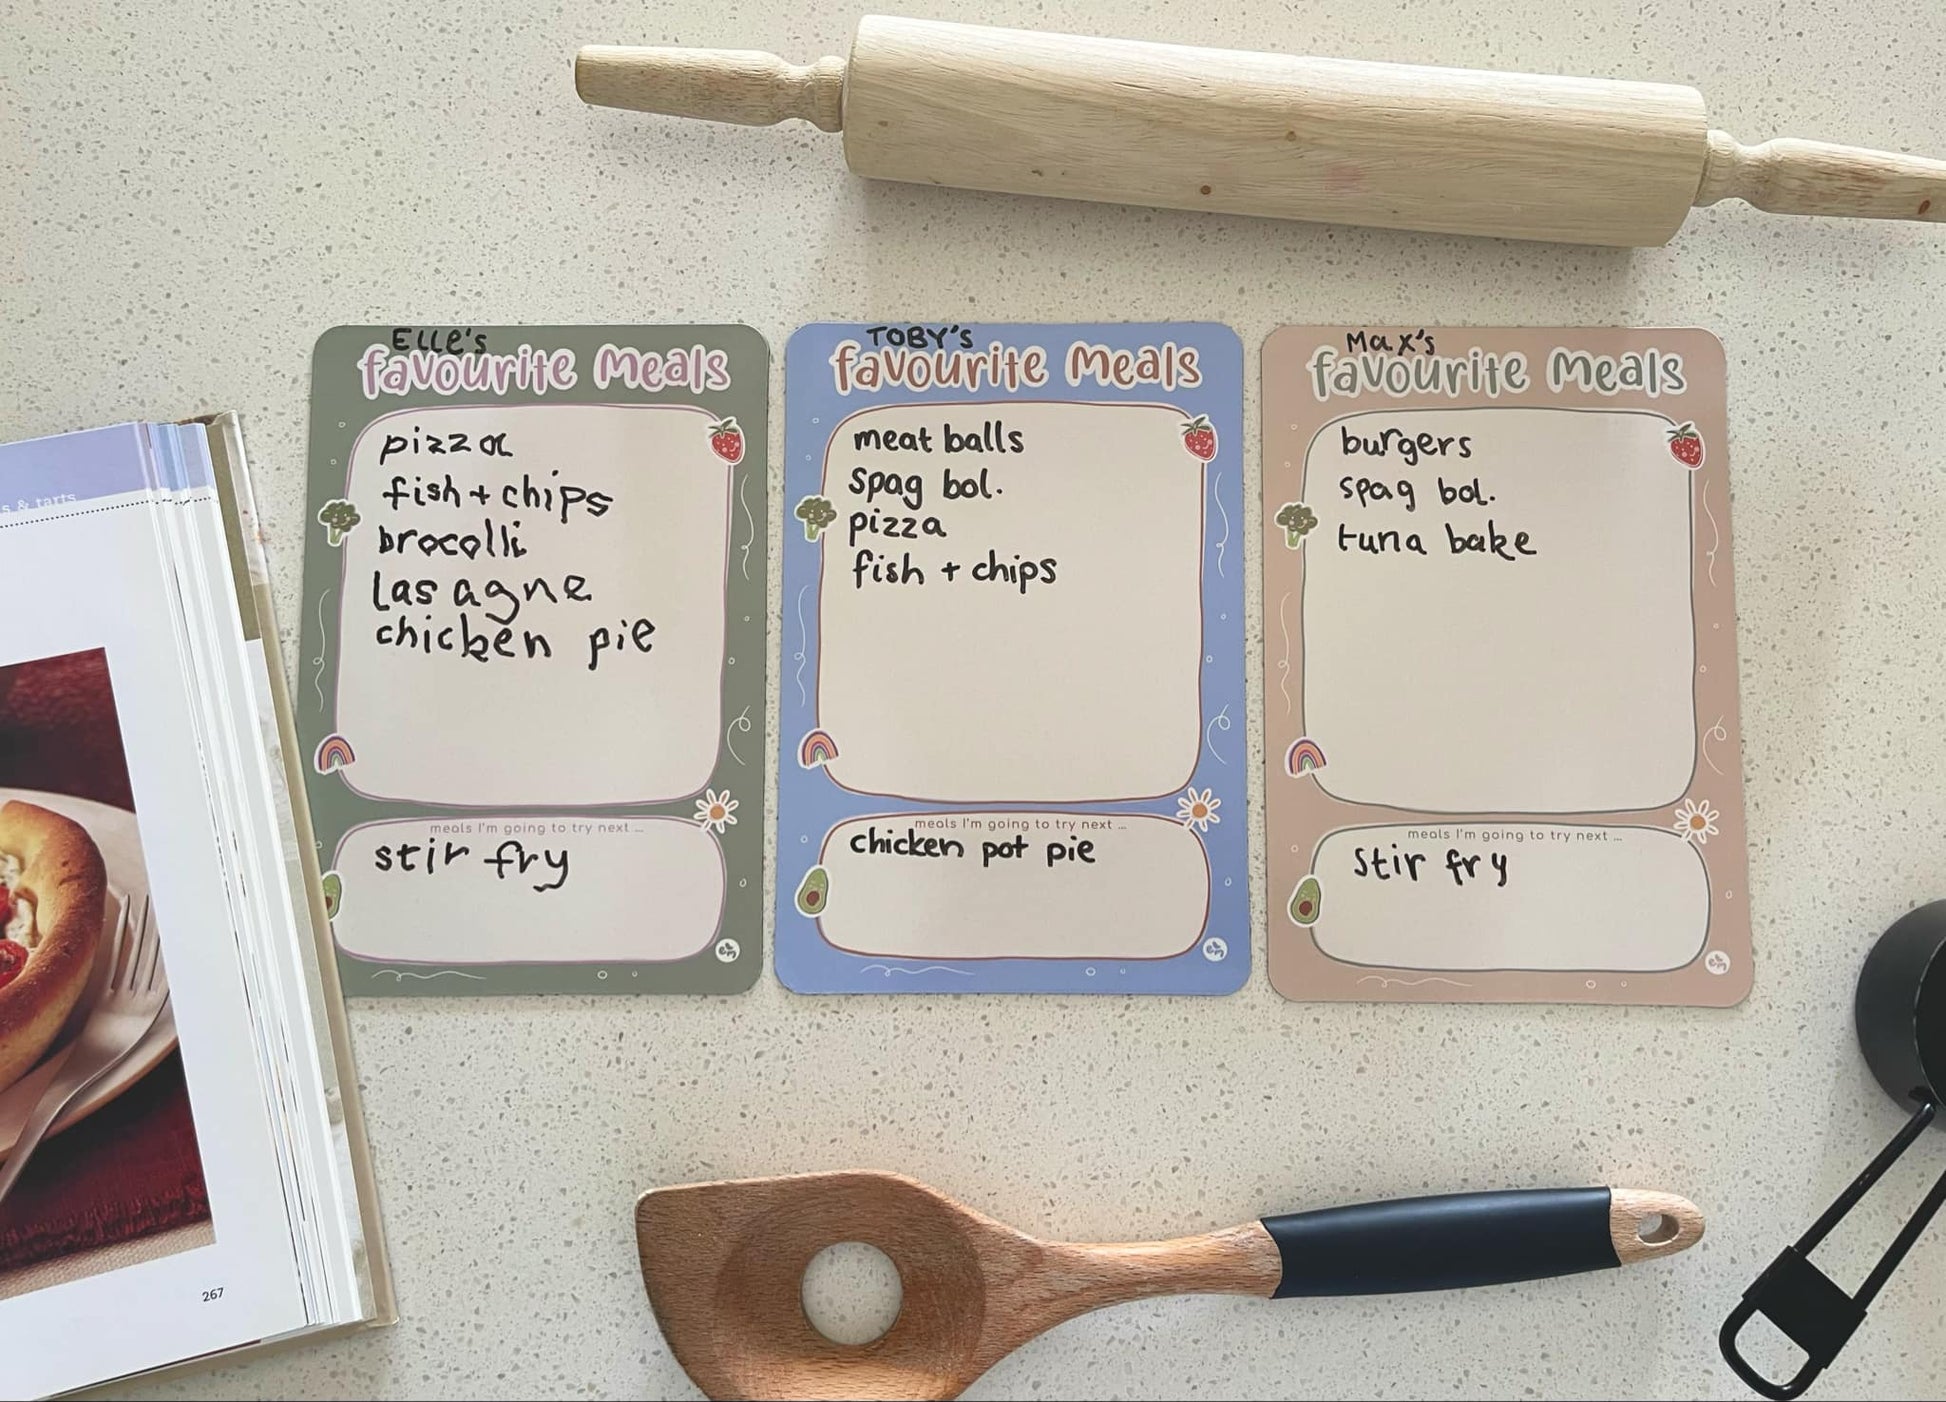 s & tarts
267
ELLe's
favourite meals
pizza
fish + chips
brocolli
lasagne
chicken pie
meals I'm going to try next ...
stir fry
TOBY's
favourite meals
meat balls
spag bol.
pizza
fish + chips
meals I'm going to try next ...
chicken pot pie
Max's
favourite meals
burgers
spag bol.
tuna bake
meals I'm going to try next ...
stir fry